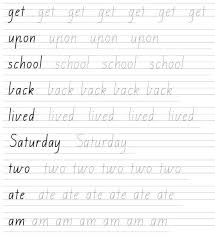 get get get get get get get
upon upon upon upon
school school school school
back back back back back
lived lived lived lived lived
Saturday Saturday
two two two two two two
ate ate ate ate ate ate ate
am am am am am am am